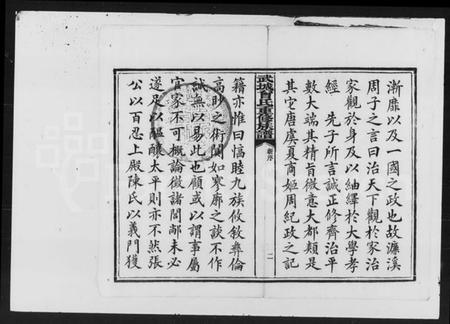 漸靡以及一國之政也故濂溪
周子之言曰治天下觀於家治
家觀於身及以紬繹於大學孝
經先子所言誠正修齊治平
數大端其精旨微意大都類是
其它唐虞夏商姬周紀政之記
武城曾氏重修族譜
序
二
籍亦惟曰惇睦九族攸敘彝倫
高眇之術闊如寥廓之談不作
試無以易此也顧或以謂事屬
官家不可概論徵諸閭邨未必
遂足以醞釀太平則亦不然張
公以百忍上殿陳氏以義門獲